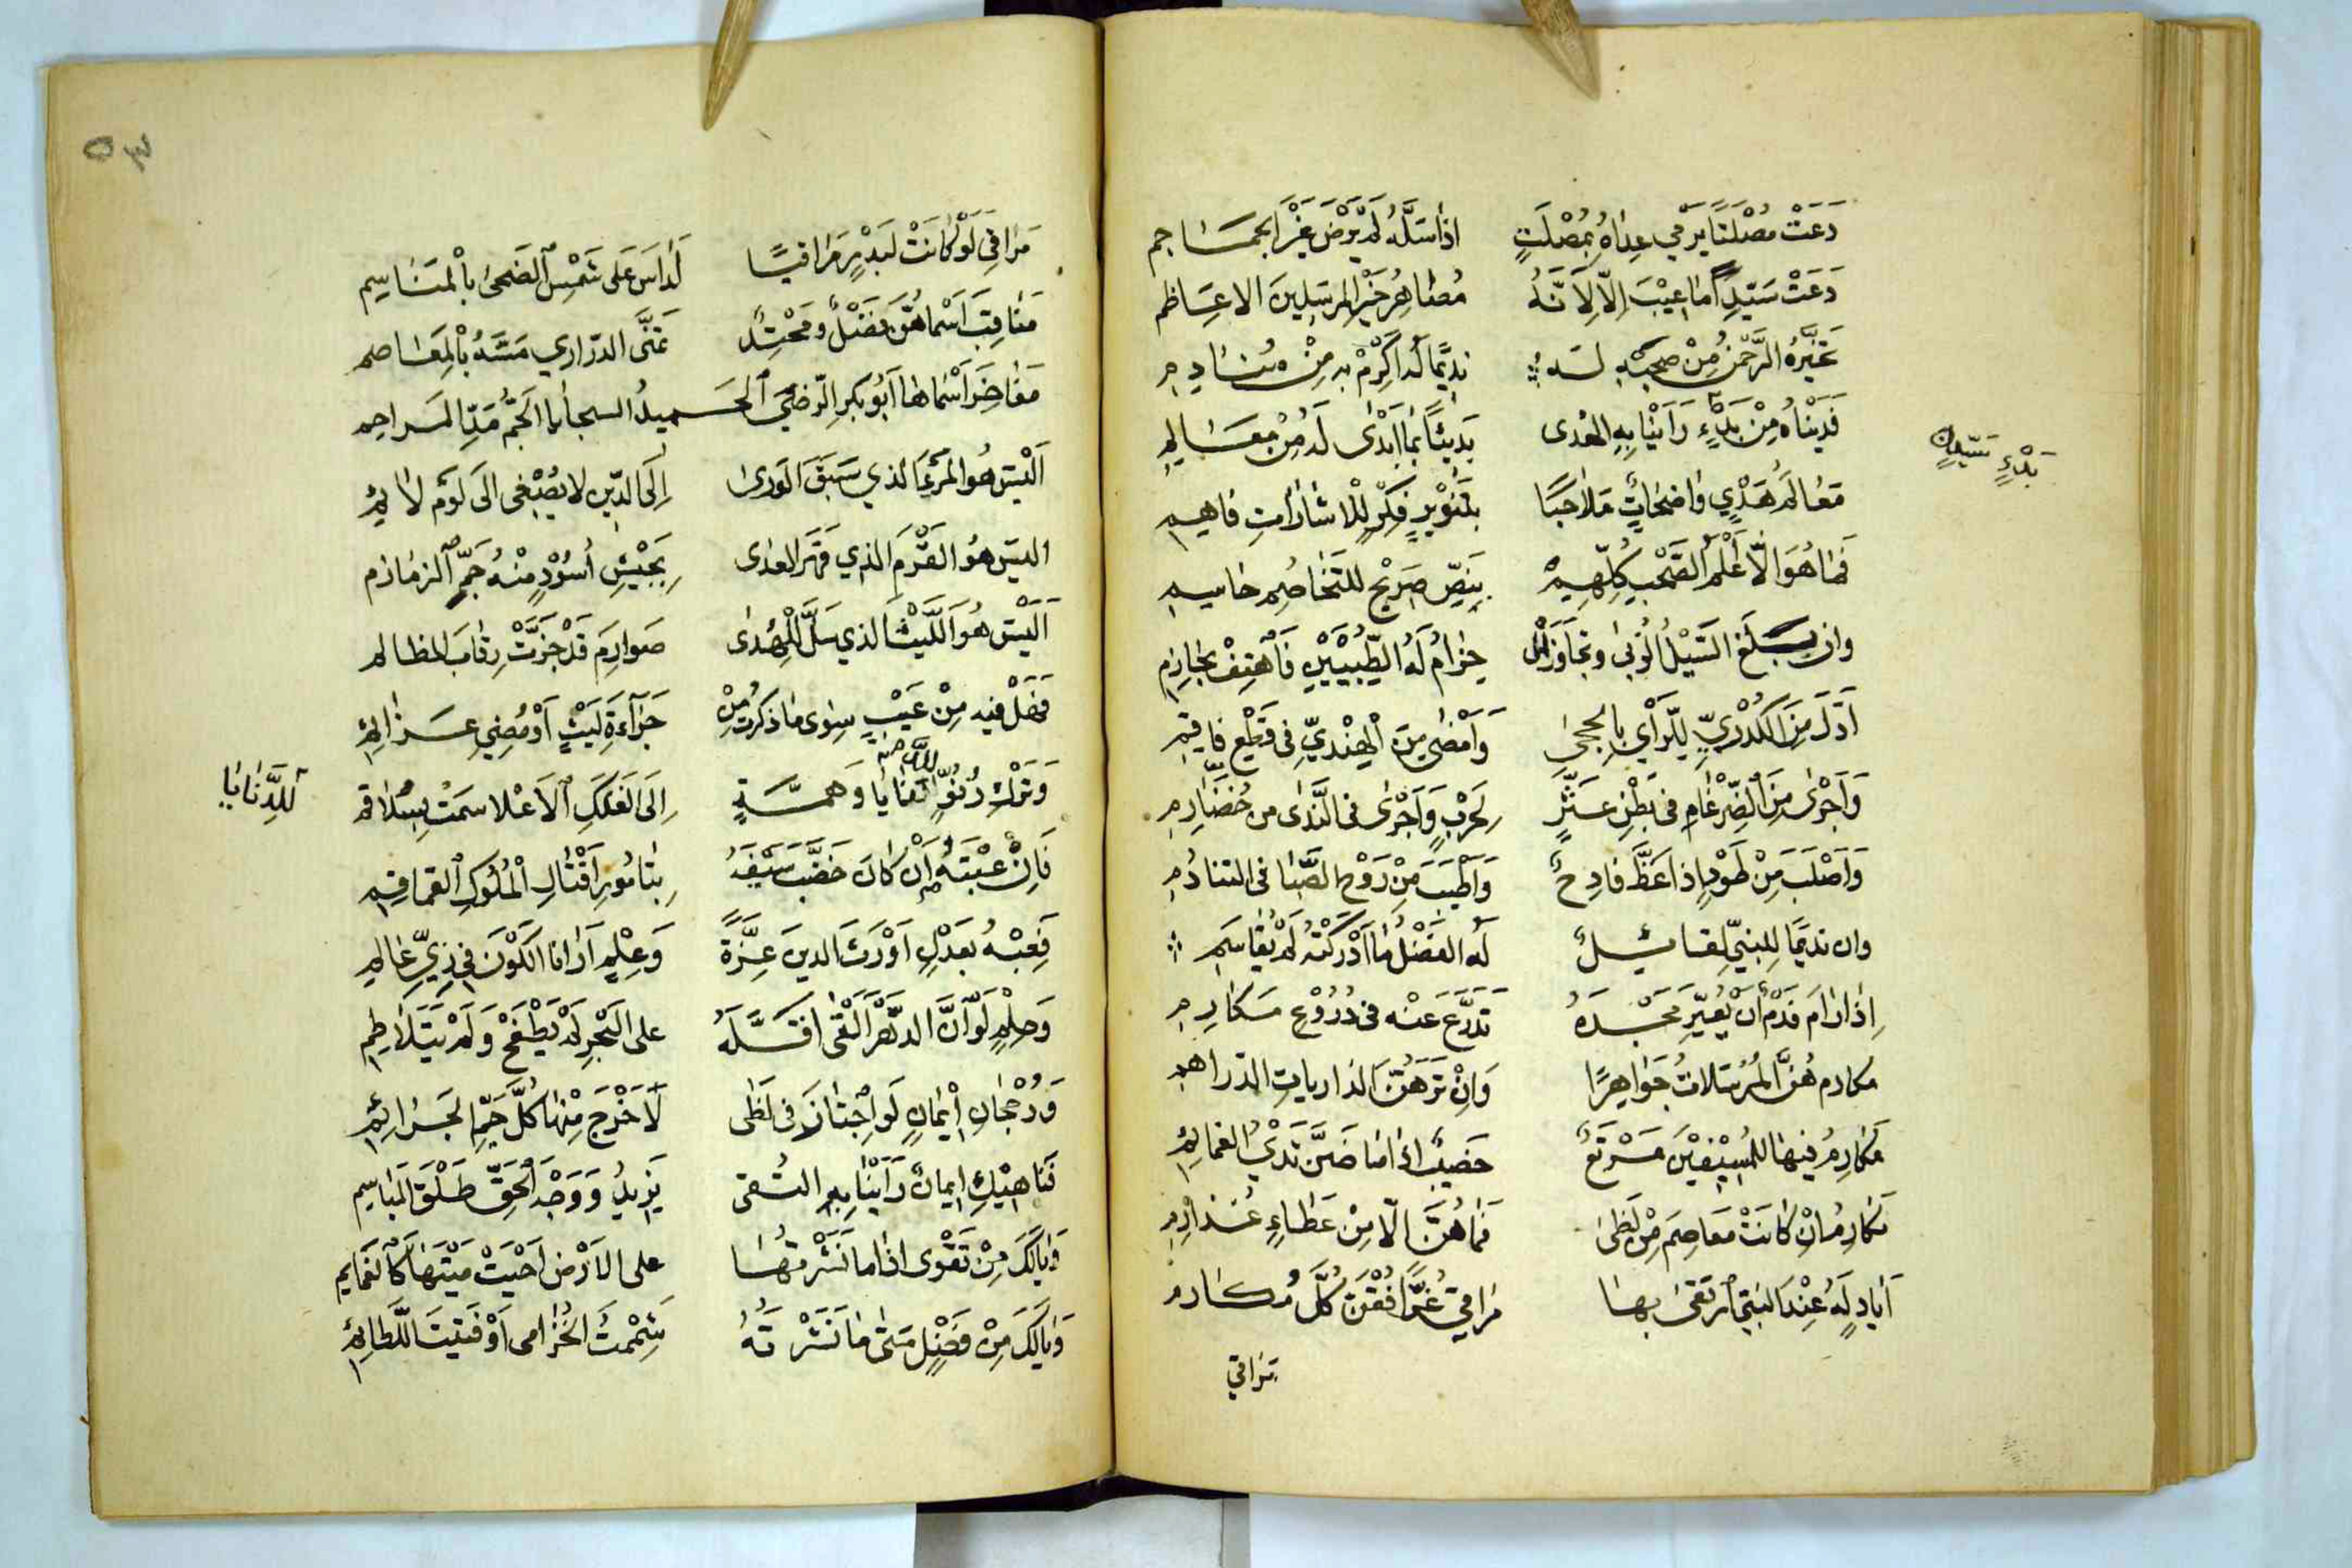 دَعَتْ مُصْلَتًا يَرْمي عِداهُ بِمُصْلَتٍ اذا سَلَّهُ لم يَرْضَ غَيْرَ الجماجم
دَعَتْ سَيّدًا ما عِيْبَ إلّا لِأَنَّهُ مُصاهِرُ خَيْرِ المرسلينَ الاعاظم
تخيَّرهُ الرَّحْمنُ مِنْ صحبِهِ لهُ نديمًا لهُ أكْرِمْ بهِ مِنْ منادم
فديناهُ مِنْ بَدْءٍ رَأَيْنا بِهِ الهُدى بَديئًا بما أَبْدى لهُ مِنْ معالم
بَدْءٍ سَيّدٍ
مَعالمُ هَدْيٍ واضحاتٍ ملاحبًا بتَنْويرِ فِكْرٍ للاشاراتِ فاهم
فما هُوَ الّا أَعْلَمُ الصَّحْبِ كُلِّهِمْ بِنَصٍّ صَريحٍ للتَّخاصُمِ حاسم
وان بلغ السَّيْلُ الزُّبى وتجاوزَ حِزامٌ لهُ الطِّبْيَيْنِ فَاهْتِفْ بحازم
أَدَلَّ مِنَ الكُدْرِيِّ للرَّأْيِ بالحجى وَأَمْضى مِنَ الهِنْديِّ في قَطْعِ فاقم
وَأَجْرى مِنَ الضِّرْغامِ في بَطْنِ عَثَّرٍ لِحَرْبٍ وَأَجْرى في النَّدى من خُضَارم
وَأَصْلَبَ مِنْ طَوْدٍ إذا عَظَّ فادِحٌ وَأَطْيَبَ مِنْ رَوْحِ الصَّبا في التنادم
وان نديمًا للنبيّ لقائلٌ لَهُ الفَضْلُ ما أَدْرَكْتَهُ لَمْ يُقاسَمِ
إذا رامَ فَدْمٌ أَنْ يُغيِّرَ مَجْدَهُ تَدَرَّعَ عَنْه في دُرُوْعِ مكارم
مكارم هُنَّ المُرْسَلاتُ جَواهرًا وَإنْ تَرَهُنَّ الذارياتِ الدراهم
مَكارِمُ فيها للمُسِيْفينَ مَرْتَعٌ خَصيبٌ اذا ما ضَنَّ ثَدْيُ الغمائم
مكارِمُ إنْ كانَتْ مَعاصِمَ مِنْ لَظى فما هُنَّ الّا مِنْ عَطاءِ غُذارم
أيادٍ لَهُ عِنْدَ النبيّ ارتقى بها مراقيَ غُرًّا فُقْنَ كُلَّ مُكارم
مراقي
٥٣
مَراقي لَوْ كانَتْ لبَدْرٍ مَراقيًا لَداسَ على شَمْسِ الضُّحى بالمناسم
مَناقِبُ أَسْماهُنَّ فَضْلٌ ومَحْتِدٌ تمَنَّى الدّراري مَسَّهُ بالمعاصم
مَفاخِرُ أَسْماها أَبُو بكرِ الرّضيّ الحميدُ السجايا الجَمُّ مَدّ المراحم
أَلَيْسَ هُوَ المَرْءَ الذي سَبَقَ الورى إلى الدّينِ لا يُصْغي الى لَوْمِ لائم
اليسَ هُوَ القَرْمَ الذي قَهَرَ العدى بِجَيْشِ أُسُوْدٍ مِنْهُ جَمِّ الزمازم
أَلَيْسَ هُوَ اللَّيْثَ الذي سَلَّ للهُدى صَوارِمَ قَدْ جَزَّتْ رِقابَ المظالم
فهَلْ فيهِ مِنْ عَيْبٍ سِوى ما ذكرتُ مِنْ جَراءَةِ لَيْثٍ أَوْ مُضيِّ عزائم
وَتَرْكِ دُنُوٍّ للدنايا وَهِمَّةٍ إلى الفلَكِ الأعْلا سَمَتْ بسلاقم
للدَّنايا
فَإنْ عِبْتَهُ إنْ كانَ خَضَّبَ سَيْفَهُ بتامُورِ أَقْتالِ المُلُوكِ القماقم
فَعِبْهُ بعَدْلٍ أَوْرَثَ الدينَ عِزَّةً وَعِلْمٍ أَرانا الكَوْنَ في زِيِّ عالم
وَحِلْمٍ لَوْ أَنَّ الدَّهْرَ أَلْقى أَقَلَّهُ على البَحْرِ لمْ يَطْفَحْ وَلَمْ يَتَلاطم
وَرُجْحانِ إيْمانٍ لَو اجْتازَ في لَظى لَأَخْرَجَ مِنْها كُلَّ جَمِّ الجرائم
فناهيْكَ إيمانٌ رَأَيْنا بِهِ التُقى يَزيدُ وَوَجْهَ الحَقِّ طَلْقَ المباسم
وَيالَكَ مِنْ تَقْوى اذا ما نَشَرْتَها على الأَرْضِ أَحْيَتْ مَيْتَها كالغمايم
وَيالَكَ مِنْ فَضْلٍ متى ما نَشَرْتَهُ شَمَمْتَ الخُزامى أَوْ فَتيتَ اللَّطائم